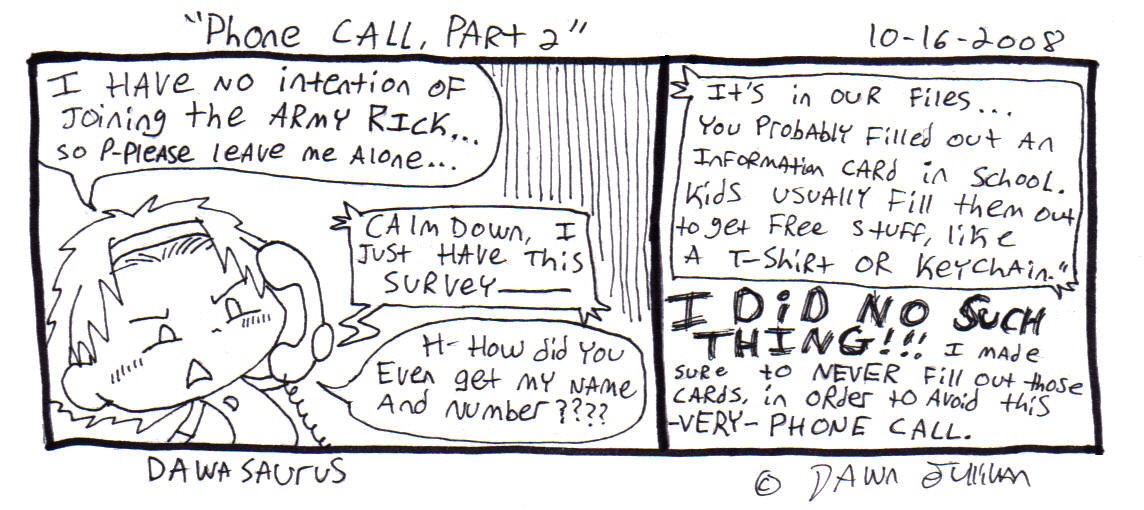 "PHONE CALL, PART 2"
10-16-2008
I HAVE NO intention OF
JOining the ARMY RICK...
SO P-PLEASE LEAVE me ALONE...
CALM DOWN, I
JUST HAVE THIS
SURVEY——
H-HOW did YOU
EVEN get MY NAME
AND NUMBER????
IT'S in OUR FiLES...
YOU PROBABLY FiLLED OUT AN
INFORMATION CARD in SCHOOL.
KiDS USUALLY FiLL them OUT
to get FREE STUFF, LiKE
A T-SHiRt OR KEYCHAiN."
I DiD NO SUCH
THING!!! I MADE
SURE to NEVER FiLL OUT those
CARDS, in ORDER to AVOiD this
-VERY- PHONE CALL.
DAWASAURUS
© DAWN